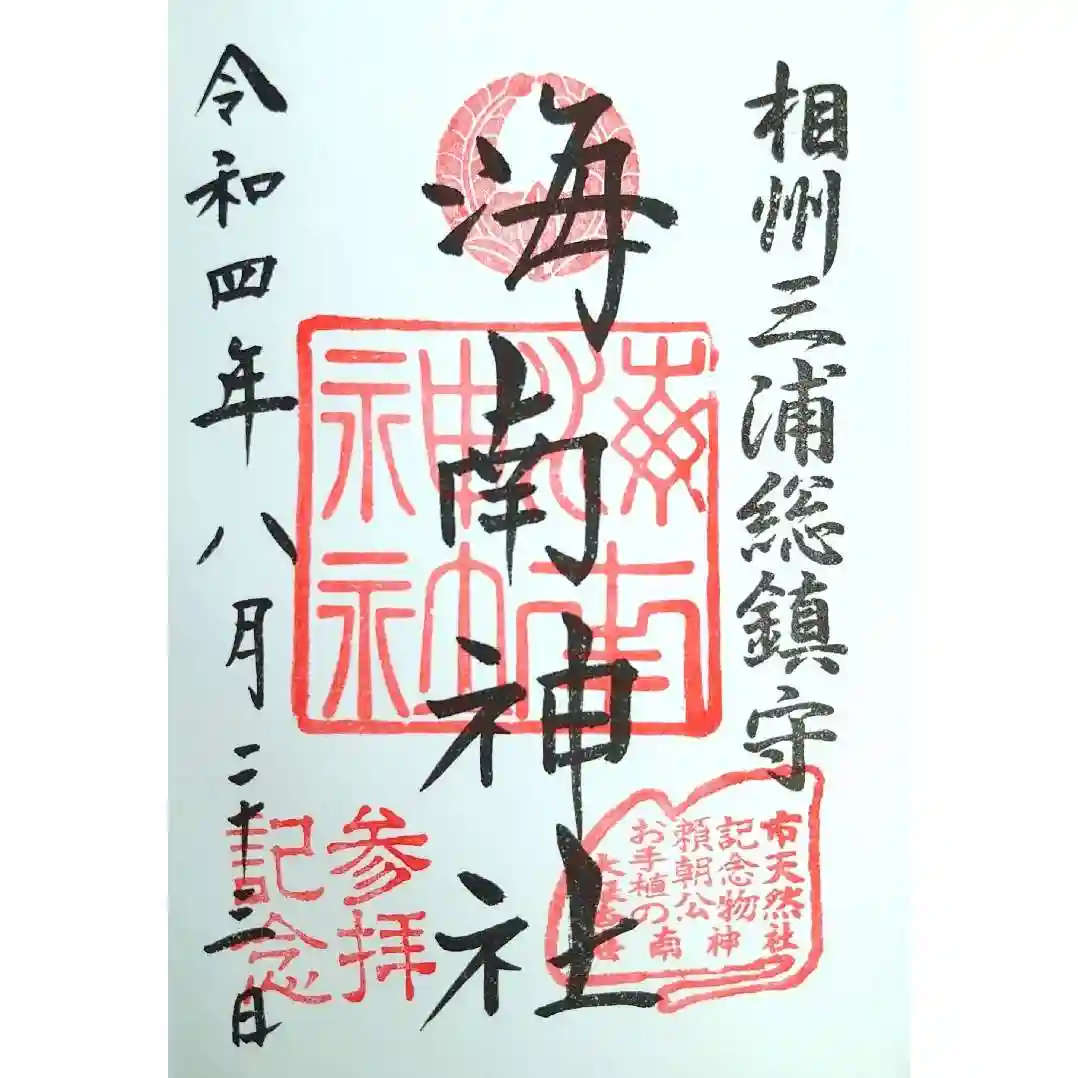 相州三浦総鎮守
海南神社
海南
神社
市天然社
記念物神
頼朝公
お手植の南
令和四年八月二十三日
参拝
記念